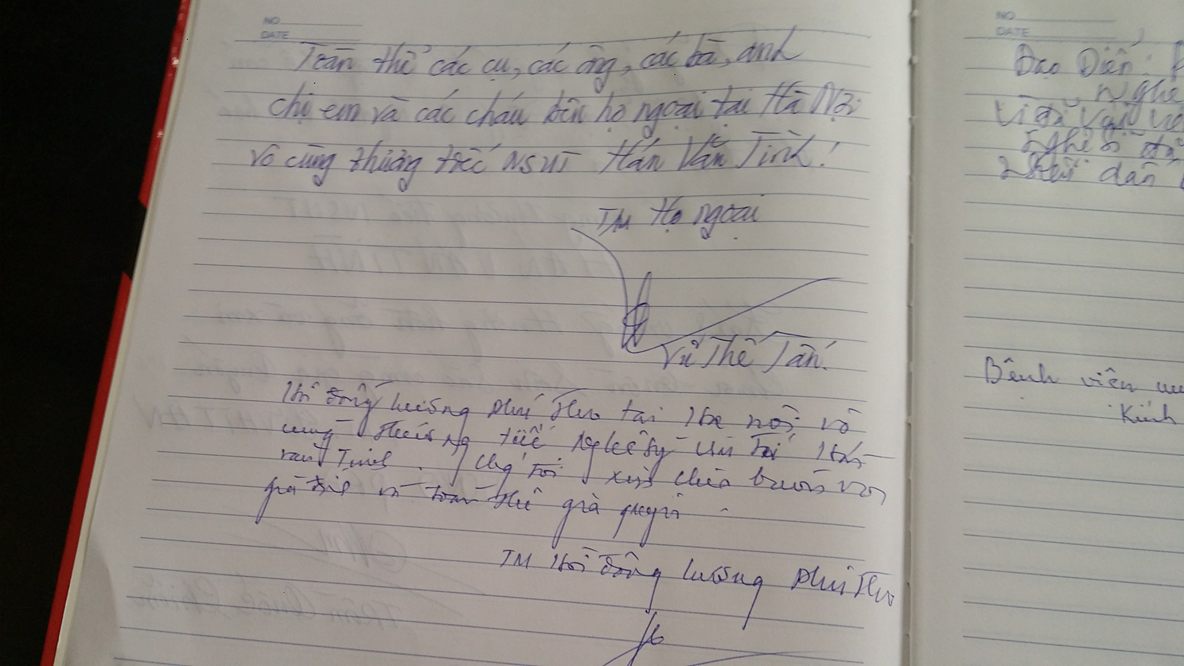 NO.
DATE
Toàn thể các cụ, các ông, các bà, anh
chị em và các cháu bên họ ngoại tại Hà Nội
vô cùng thương tiếc NSƯT Hán Văn Tình!
TM Họ ngoại
Vũ Thế Tân.
Hội đồng hương Phú Thọ tại Hà nội vô
cùng thương tiếc Nghệ sỹ ưu tú Hán
văn Tình. Chg tôi xin chia buồn với
gia đình và toàn thể gia quyến.
TM Hội đồng hương Phú Thọ
NO.
DATE
Đạo Diễn:
Nghệ
Nghệ sĩ
nhân dân
Bệnh viện
Kính